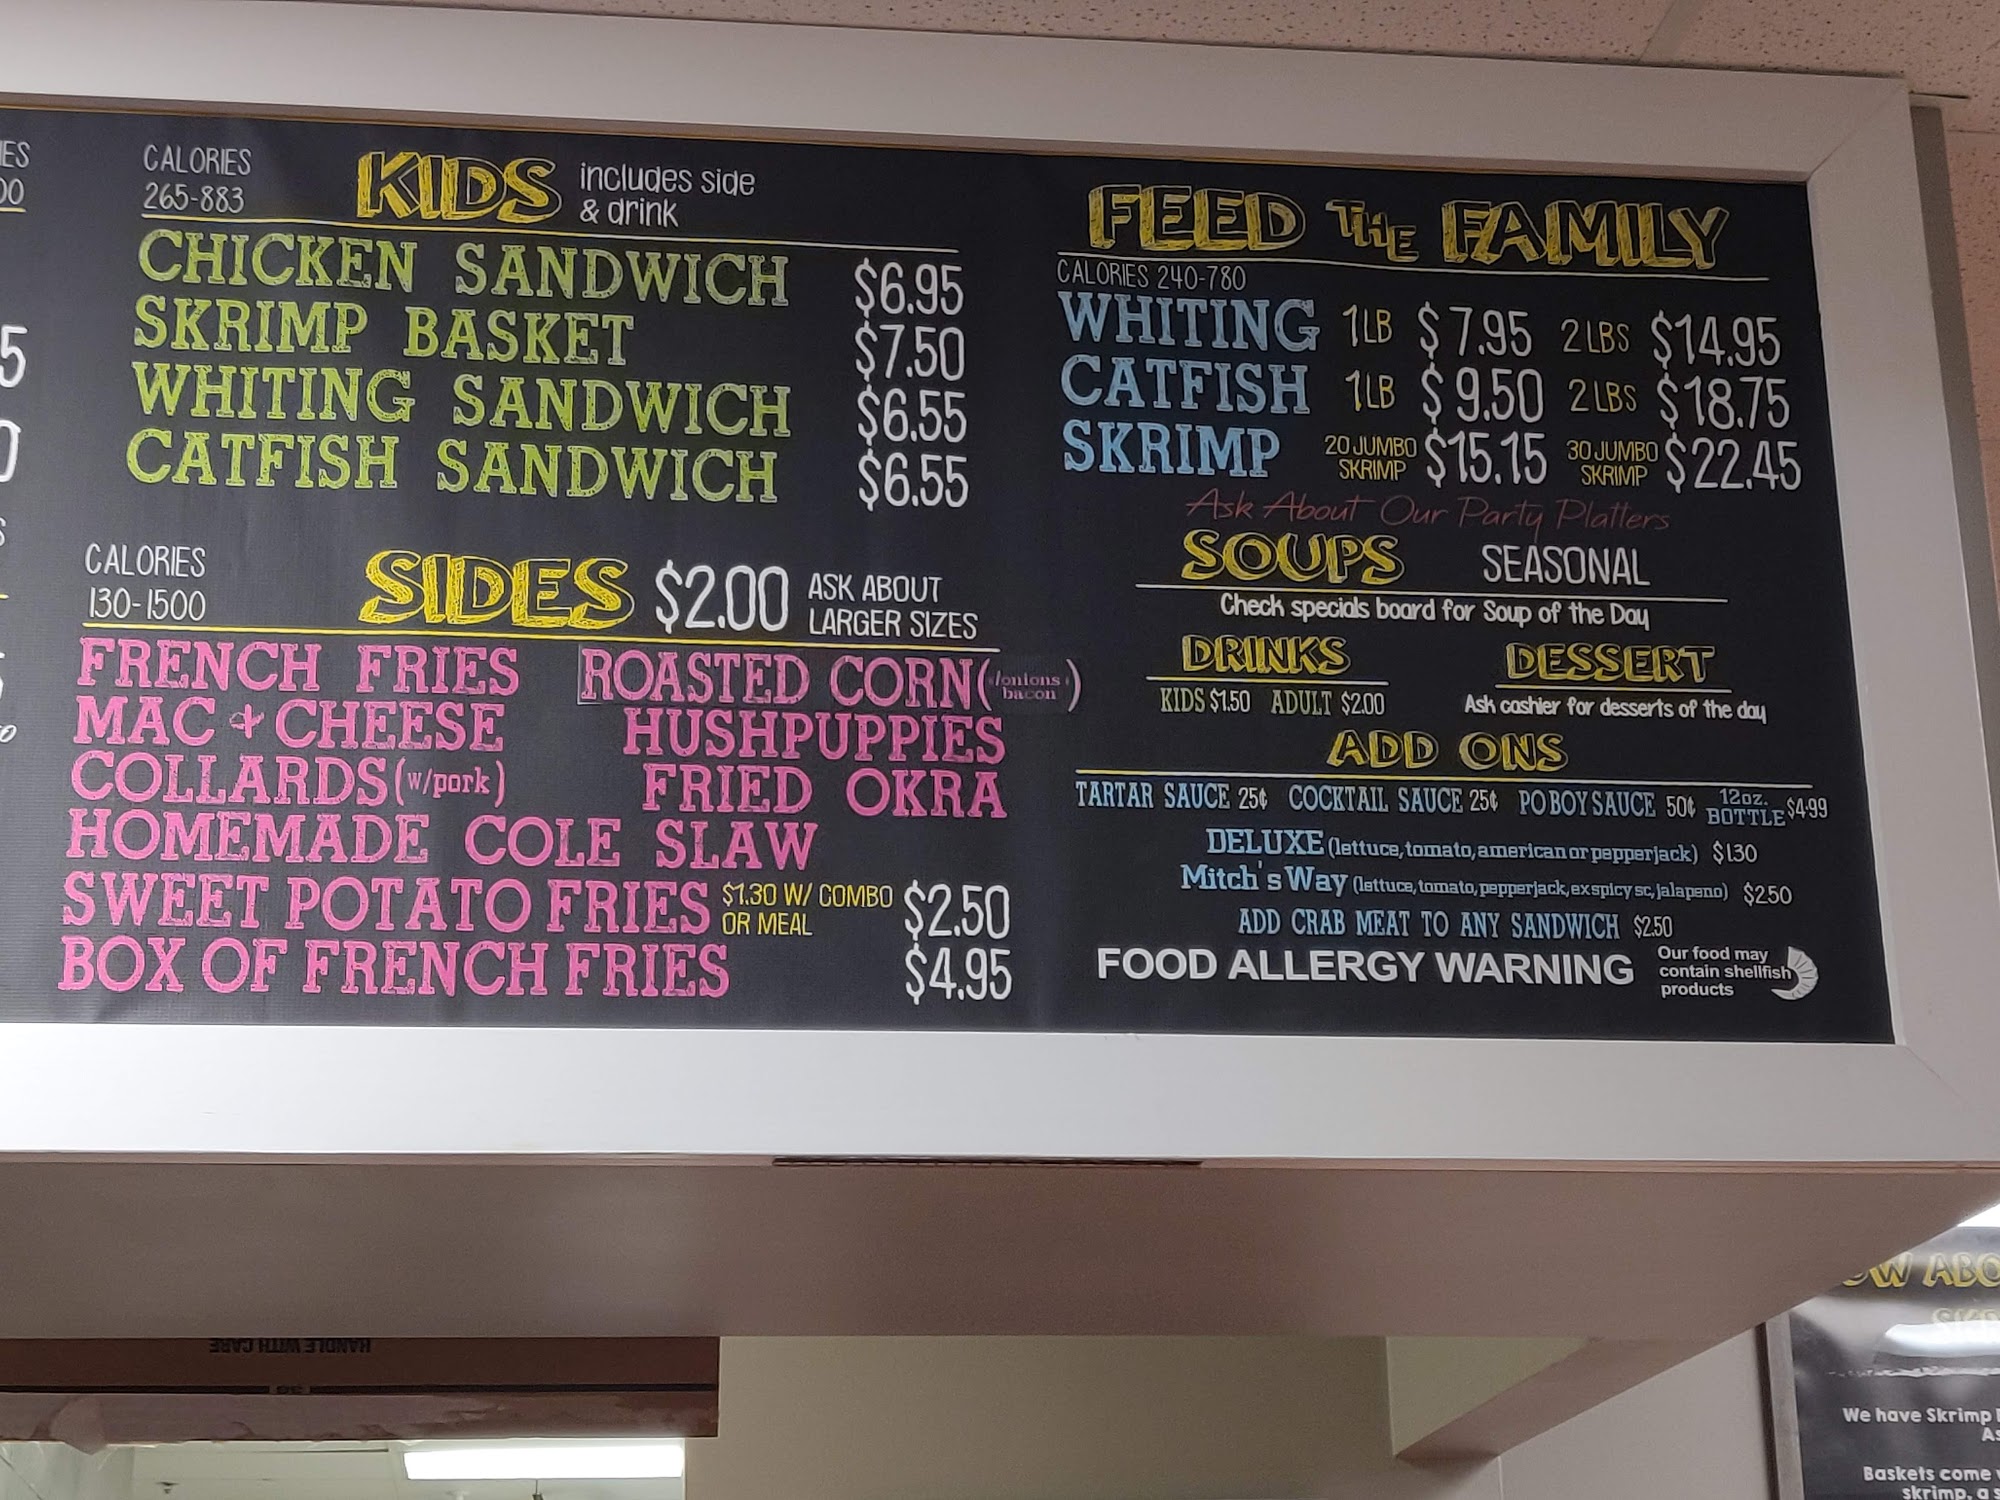 CALORIES
265-883
KIDS includes side
& drink
CHICKEN SANDWICH $6.95
SKRIMP BASKET $7.50
WHITING SANDWICH $6.55
CATFISH SANDWICH $6.55
CALORIES
130-1500
SIDES $2.00 ASK ABOUT
LARGER SIZES
FRENCH FRIES ROASTED CORN (w/onions & bacon)
MAC + CHEESE HUSHPUPPIES
COLLARDS (w/pork) FRIED OKRA
HOMEMADE COLE SLAW
SWEET POTATO FRIES $1.30 W/ COMBO OR MEAL $2.50
BOX OF FRENCH FRIES $4.95
FEED THE FAMILY
CALORIES 240-780
WHITING 1LB $7.95 2 LBS $14.95
CATFISH 1LB $9.50 2 LBS $18.75
SKRIMP 20 JUMBO SKRIMP $15.15 30 JUMBO SKRIMP $22.45
Ask About Our Party Platters
SOUPS SEASONAL
Check specials board for Soup of the Day
DRINKS
KIDS $1.50 ADULT $2.00
DESSERT
Ask cashier for desserts of the day
ADD ONS
TARTAR SAUCE 25¢ COCKTAIL SAUCE 25¢ PO BOY SAUCE 50¢ 12oz. BOTTLE $4.99
DELUXE (lettuce, tomato, american or pepperjack) $1.30
Mitch's Way (lettuce, tomato, pepperjack, ex spicy sc, jalapeno) $2.50
ADD CRAB MEAT TO ANY SANDWICH $2.50
FOOD ALLERGY WARNING Our food may
contain shellfish
products
HANDLE WITH CARE
We have Skrimp
Baskets come
skrimp, a